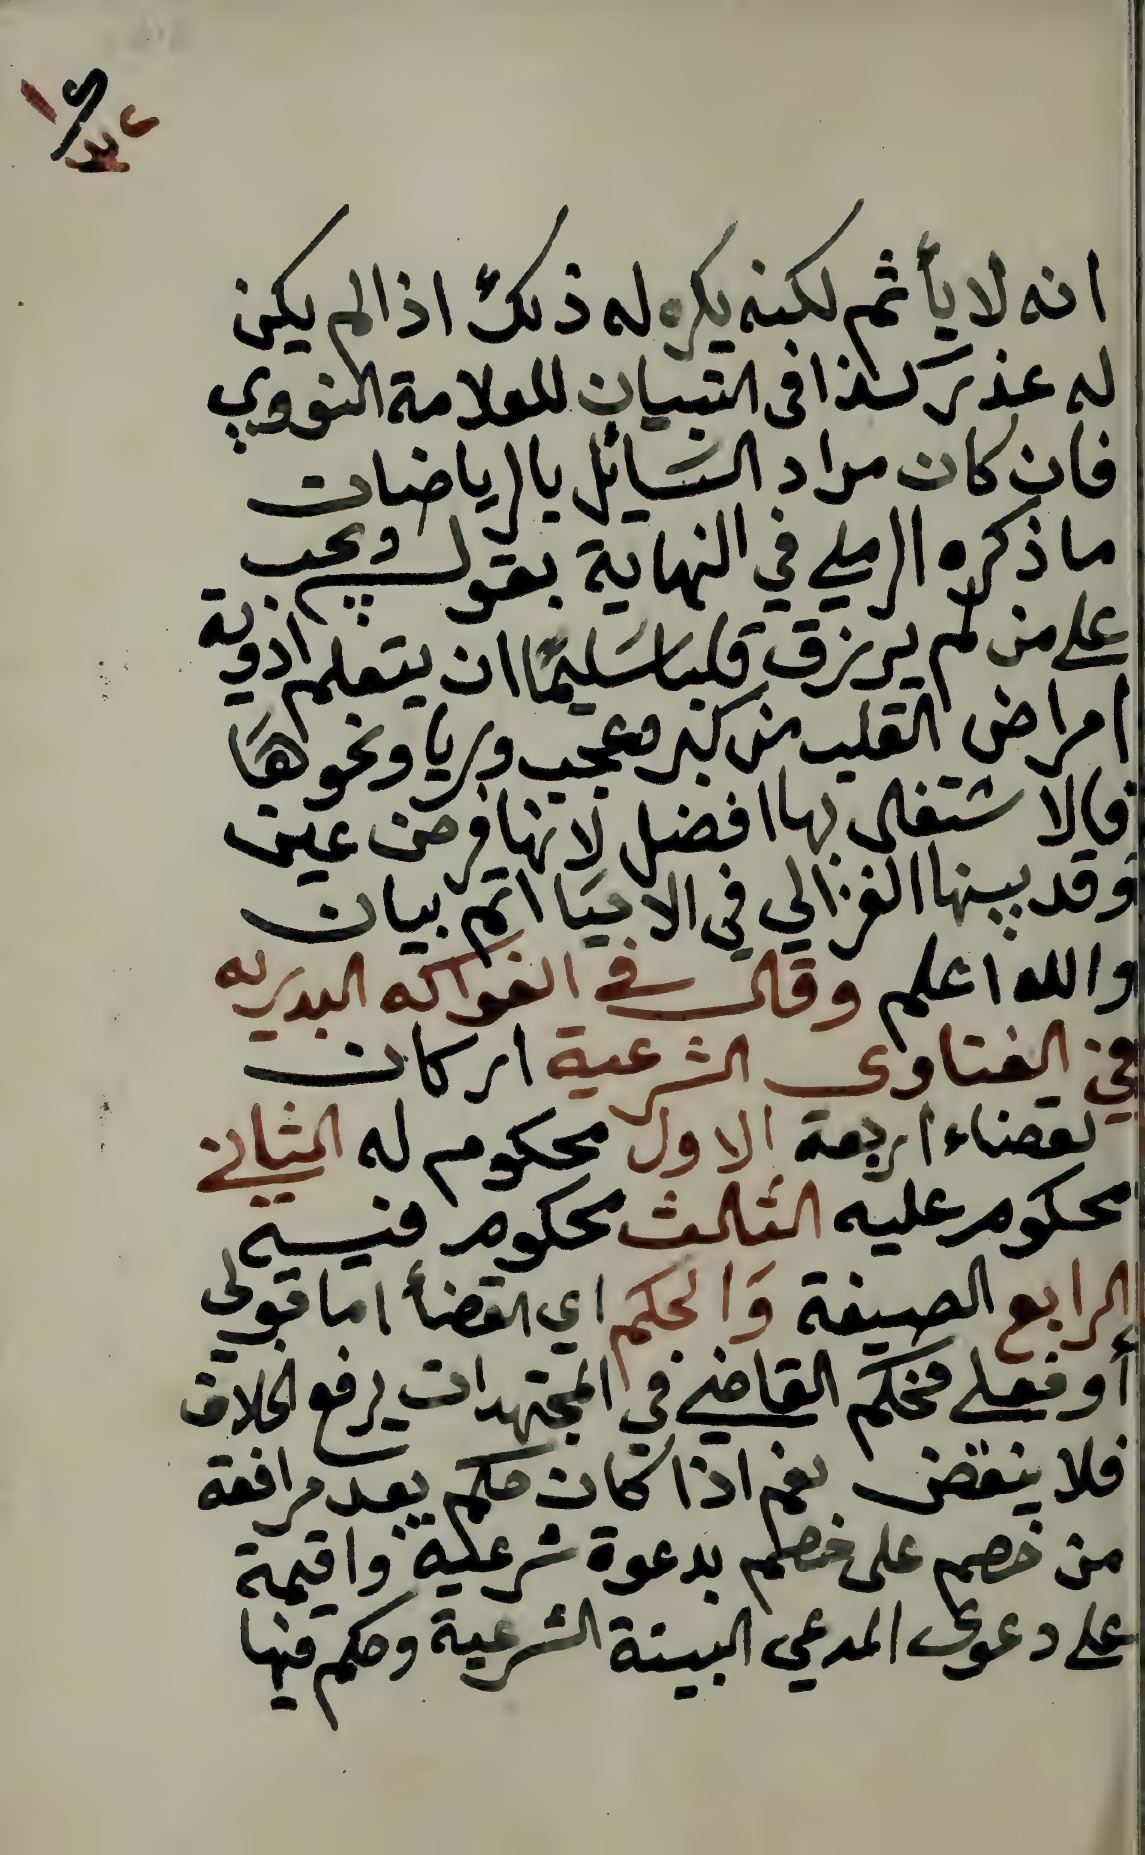 انه لا يأثم لكنه يكره له ذلك اذا لم يكن
له عذر كذا فى التبيان للعلامة النووي
فان كان مراد السَائل بالرياضات
ما ذكره الرملي في النهاية بقوله ويجب
على من لم يرزق قلبا سَليمًا ان يتعلم ادوية
امراض القلب من كبر وعجب وريا ونحوهَا
فالاشتغال بها افضل لانها فرض عين
وقد بينها الغزالي في الاحيَا اتم بيان
والله اعلم وقال في الفواكه البدريه
في الفتاوى الشرعية اركان
لقضاء اربعة الاول محكوم له الثاني
محكوم عليه الثالث محكوم فيه
الرابع الصيغة وَالحكم اي القضأ اما قولى
أو فعلي فحكم القاضي في المجتهدات يرفع الخلاف
فلا ينقض نعم اذا كان حكم بعد مرافعة
من خصم على خصم بدعوة شرعية واقيمة
على دعوى المدعي البينة الشرعية وحكم فيها